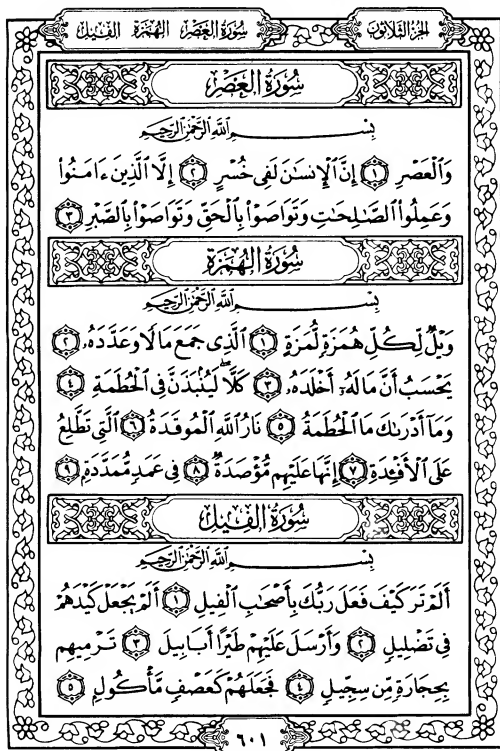 سُورَةُ العَصْرِ الهُمَزَة الفِيل
الجزء الثلاثون
سُورَةُ العَصْرِ
بِسْمِ ٱللَّهِ ٱلرَّحْمَٰنِ ٱلرَّحِيمِ
وَٱلْعَصْرِ ١ إِنَّ ٱلْإِنسَٰنَ لَفِى خُسْرٍ ٢ إِلَّا ٱلَّذِينَ ءَامَنُوا۟
وَعَمِلُوا۟ ٱلصَّٰلِحَٰتِ وَتَوَاصَوْا۟ بِٱلْحَقِّ وَتَوَاصَوْا۟ بِٱلصَّبْرِ ٣
سُورَةُ الهُمَزَةِ
بِسْمِ ٱللَّهِ ٱلرَّحْمَٰنِ ٱلرَّحِيمِ
وَيْلٌ لِّكُلِّ هُمَزَةٍ لُّمَزَةٍ ١ ٱلَّذِى جَمَعَ مَالًا وَعَدَّدَهُۥ ٢
يَحْسَبُ أَنَّ مَالَهُۥٓ أَخْلَدَهُۥ ٣ كَلَّا ۖ لَيُنۢبَذَنَّ فِى ٱلْحُطَمَةِ ٤
وَمَآ أَدْرَىٰكَ مَا ٱلْحُطَمَةُ ٥ نَارُ ٱللَّهِ ٱلْمُوقَدَةُ ٦ ٱلَّتِى تَطَّلِعُ
عَلَى ٱلْأَفْـِٔدَةِ ٧ إِنَّهَا عَلَيْهِم مُّؤْصَدَةٌ ٨ فِى عَمَدٍ مُّمَدَّدَةٍۭ ٩
سُورَةُ الفِيلِ
بِسْمِ ٱللَّهِ ٱلرَّحْمَٰنِ ٱلرَّحِيمِ
أَلَمْ تَرَ كَيْفَ فَعَلَ رَبُّكَ بِأَصْحَٰبِ ٱلْفِيلِ ١ أَلَمْ يَجْعَلْ كَيْدَهُمْ
فِى تَضْلِيلٍ ٢ وَأَرْسَلَ عَلَيْهِمْ طَيْرًا أَبَابِيلَ ٣ تَرْمِيهِم
بِحِجَارَةٍ مِّن سِجِّيلٍ ٤ فَجَعَلَهُمْ كَعَصْفٍ مَّأْكُولٍۭ ٥
٦٠١